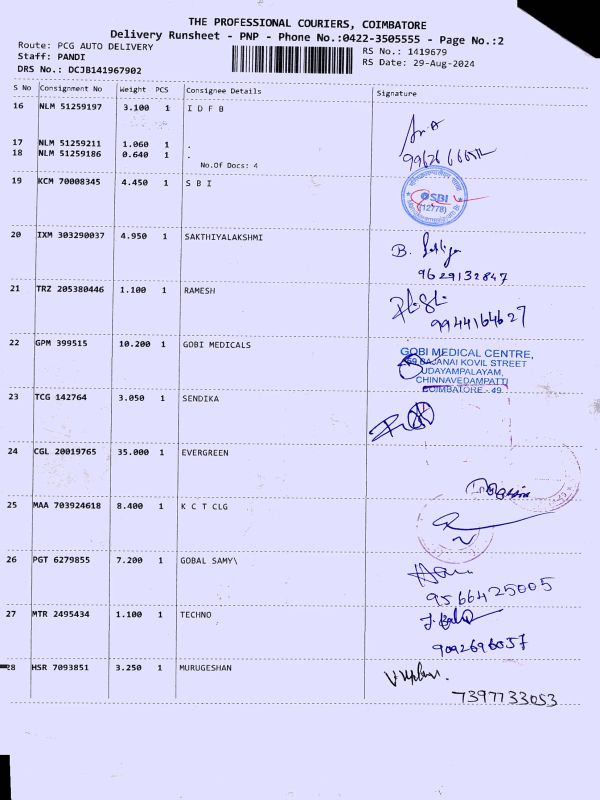 THE PROFESSIONAL COURIERS, COIMBATORE
Delivery Runsheet - PNP - Phone No.:0422-3505555 - Page No.:2
Route: PCG AUTO DELIVERY
RS No.: 1419679
Staff: PANDI
RS Date: 29-Aug-2024
DRS No.: DCJB141967902
S No Consignment No Weight PCS Consignee Details Signature
16 NLM 51259197 3.100 1 I D F B
17 NLM 51259211 1.060 1 .
18 NLM 51259186 0.640 1 .
No.Of Docs: 4
19 KCM 70008345 4.450 1 S B I
SBI
(12778)
20 IXM 303290037 4.950 1 SAKTHIYALAKSHMI
B.
9629132847
21 TRZ 205380446 1.100 1 RAMESH
9944164627
22 GPM 399515 10.200 1 GOBI MEDICALS
GOBI MEDICAL CENTRE,
BAJANAI KOVIL STREET
UDAYAMPALAYAM,
CHINNAVEDAMPATTI
COIMBATORE - 49.
23 TCG 142764 3.050 1 SENDIKA
24 CGL 20019765 35.000 1 EVERGREEN
25 MAA 703924618 8.400 1 K C T CLG
26 PGT 6279855 7.200 1 GOBAL SAMY\
9566425005
27 MTR 2495434 1.100 1 TECHNO
9092696057
28 HSR 7093851 3.250 1 MURUGESHAN
7397733053